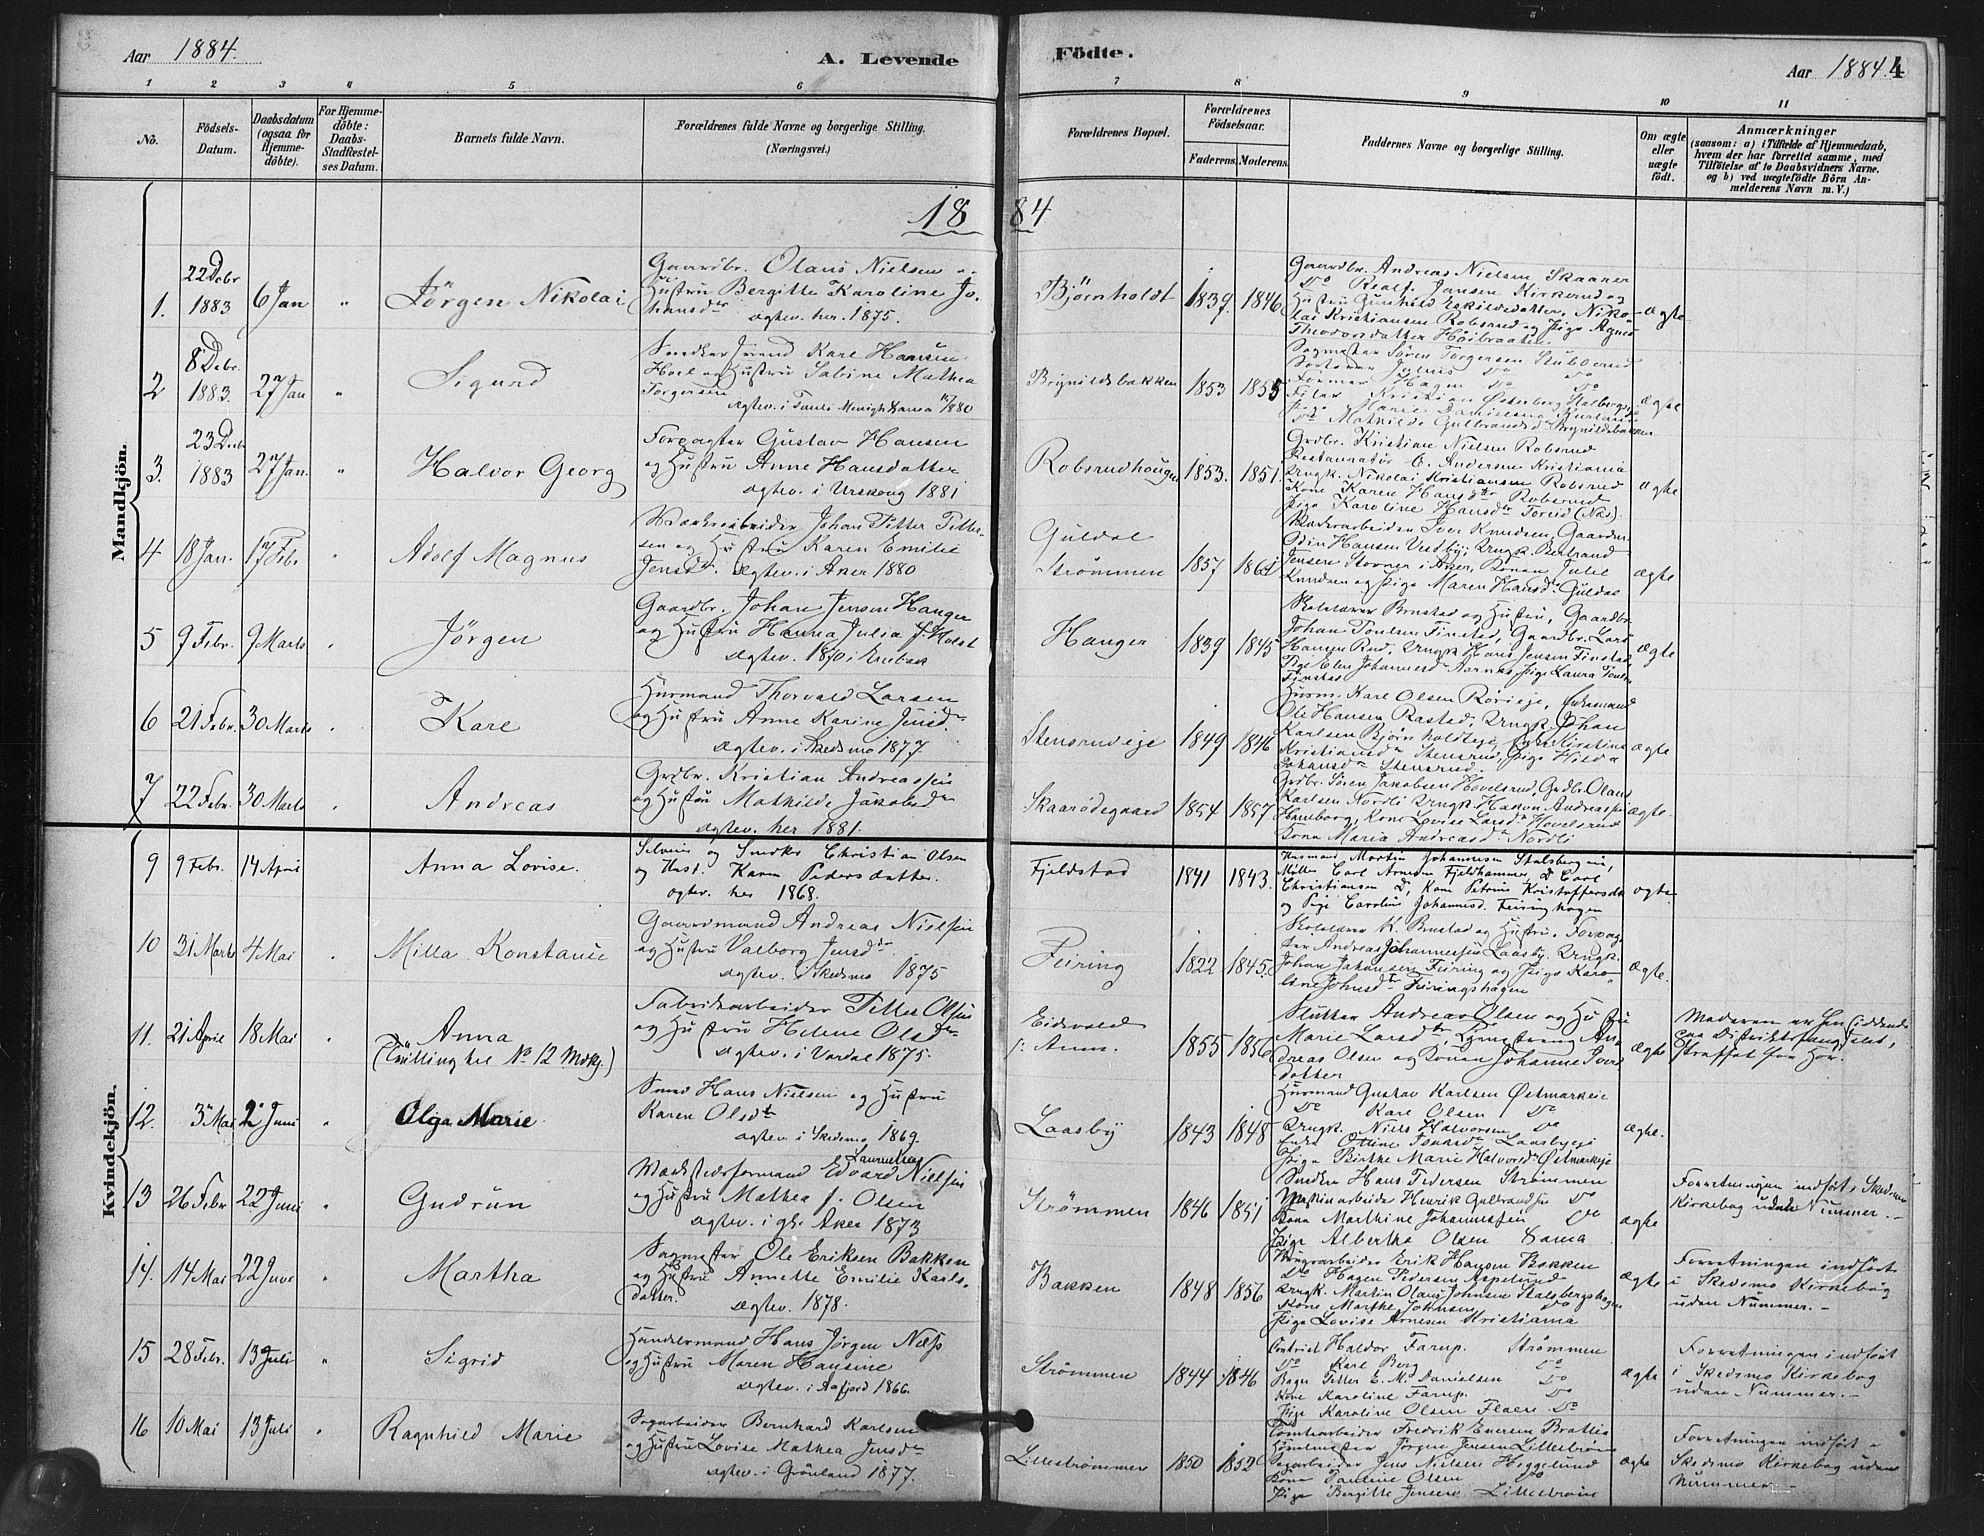 Aar 1884.
A. Levende
Födte.
Aar 1884.
4
1 2 3 4 5 6
7 8 9 10 11
No.
Födsels-
Datum.
Daabsdatum
(ogsaa for
Hjemme-
döbte).
For Hjemme-
döbte:
Daabs-
Stadfæstel-
ses Datum.
Barnets fulde Navn.
Forældrenes fulde Navne og borgerlige Stilling.
(Næringsvei.)
Forældrenes Bopæl.
Forældrenes
Födselsaar.
Faderens. Moderens.
Faddernes Navne og borgerlige Stilling.
Om ægte
eller
uægte
født.
Anmærkninger
(saasom: a) i Tilfælde af Hjemmedaab,
hvem der har forrettet samme, med
Tilföielse af to Daabsvidners Navne,
og b) ved uægtefödte Börn An-
melderens Navn m. V.)
1884
Mandkjön.
1.
22 Debr
1883
6 Jan
"
Jörgen Nikolai
Gaardbr. Olaus Nielsen
Hustru Bergitte Karoline Jo-
hansdr
ægtev. her. 1875.
Bjørnholdt
1839.
1846
Gaardbr. Andreas Nielsen Skaarer
Do Realf Jansen Kirkerud og
Hustru Gunhild Eskildsdatter, Niko-
lai Kristiansen Robsrud og Pige Agnes
Theodorsdatter Höibraaten
ægte
2
8 Debr.
1883.
27 Jan
"
Sigurd
Snedkersvend Karl Hansen
Hoel og Hustru Sabine Mathea
Torgersen
1853
1855
Brynildsbakken
Sagmester Sören Torgersen Stubberud
Former Hagen Do Do
ægte
3.
23 Debr
1883
27 Jan.
"
Halvor Georg
Forpagter Gustav Hansen
og Hustru Anne Hansdatter
ægtev. i Urskoug 1881
Robsrudhougen
1853.
1851.
Grdbr. Kristian Nielsen Robsrud
Restauratör C. Andersen Kristiania
Ungk. Nikolai Kristiansen Robsrud
Kone Karen Hansdtr Robsrud
Pige Karoline Hansdtr Toreid (Næs).
ægte
4
18 Jan.
17 Febr
"
Adolf Magnus
Værksarbeider Johan Petter Petter-
sen og Hustru Karen Emilie
Jensdr. Ægtev. i Aker 1880
Guldal
Strømmen
1857
Maskinarbeider Iver Knudsen, Gaardm.
Odin Hansen Vestby, Ungk. Bertrand
Jensen Stovner i Aker, Konen Julie
Knudsen og Pige Maren Hansdr Guldal
ægte
5
9 Febr.
9 Marts
"
Jörgen
Gaardbr. Johan Jensen Hauger
og Hustru Hanna Julia f. Holst
Hauger
1839
1845
Skolelærer Brustad og Hustru, Gaardbr.
Johan Poulsen Finstad, Gaardbr. Lars
Hansen Rud, Ungk Hans Jensen Finstad,
Pige Elen Johannesdr Aarnæs, Pige Laura Poulsen
Finstad
ægte
6
21 Febr.
30 Marts
"
Kare
Husmand Thorvald Larsen
og Hustru Anne Karine Jensdr
ægtev. i Skedsmo 1877.
Stensrudeie
1849
1846
Husm. Karl Olsen Röreie,
Ole Hansen Rasted, Ungk. Johan
Karlsen Björnholdteie, Enke Kirstine
Kristiansdr Stensrud, Pige Hilda
Johansdr Stensrud.
ægte
7
22 Febr.
30 Marts
"
Andreas
Grdbr. Kristian Andreassen
og Hustru Mathilde Jakobsdr
ægtev. her 1881.
Skaarødegaard
1854
1857
Grdbr. Sören Jakobsen Hovelsrud, Grdbr. Olaus
Karlsen Nordli, Ungk. Hakon Andreassen
Hamborg, Kone Lovise Larsdr Hovelsrud
Kone Maria Andreasdr Nordli
ægte.
Kvindekjön.
9
9 Febr.
14 April
Anna Lovise.
Selveier og Snedker Christian Olsen
og Hust. Karen Pedersdatter.
ægtev. her 1868.
Fjeldstad
1841
1843.
Husmand Martin Johannesen Stalsbergeie,
Møller Carl Arnesen Fjeldhammer, D Carl
Christiansen D, Kone Petrine Kristoffersdr
og Pige Caroline Johannesd. Feiringhagen
ægte
10
31 Marts
4 Mai
"
Milla Konstance
Gaardmand Andreas Nielsen
og Hustru Valborg Jensdr
ægtev. Skedsmo 1875
Feiring
1822
1845.
Skolelærer K. Brustad og Hustru, Forpag-
ter Andreas Johannessen Laasby, Ungk.
Johan Johansen Feiring og Pige Karo-
line Johnsdtr Feiringshagen
ægte.
11.
21 April
18 Mai
"
Anna
(Tvilling til No 12 Mdkj.)
Fabrikarbeider Petter Olsen
og Hustru Helene Olsdr
ægtev. i Vardal 1875.
Eidsvold
1855
1856
Slutter Andreas Olsen og Hustru
Marie Larsdtr, An-
dreas Olsen og Konen Johanne Ivers-
datter
ægte
Moderen er hensiddende
paa Distriktsfængslet,
straffet for Hor.
12.
3 Mai
2 Juni
"
Olga Marie
Smed Hans Nielsen og Hustru
Karen Olsdtr
ægtev. i Skedsmo 1869.
Laasby
1843
1848
Husmand Gustav Karlsen Østmarkeie
Do Karl Olsen Do
Ungk. Niels Halvorsen Do
Pige Birthe Marie Halvorsdr Østmarkeie
ægte.
13
26 Febr
22 Juni
"
Gudrun
Værkstedsformand Edvard Laurentius Nielsen
og Hustru Mathea f. Olsen
ægtev. i gl. Aker 1873
Strømmen
1846
1851
Snedker Hans Pedersen Strømmen
Maskinarbeider Henrik Gulbrandsen Do
Kona Marthine Johannessen Do
Pige Albertha Olsen Sama
ægte
Forretningen indført i Skedsmo
Kirkebog uden Nummer.-
14.
14 Mai
22 Juni
"
Martha
Sagmester Ole Eriksen Bakken
og Hustru Annette Emilie Karls-
datter.
ægtev. 1878.
Bakken
1848
1856
Brugsarbeider Erik Hansen Bakken
Do Hagen Pedersen Aspelund
Ungk. Martin Olaus Johnsen Stalsberghagen
Kone Marthe Johnsen Do
Pige Lovise Arnesen Kristiania
ægte
Forretningen indført
i Skedsmo Kirkebog
uden Nummer.-
15
28 Febr.
13 Juli
"
Sigrid
Handelsmand Hans Jörgen Næss
og Hustru Maren Hansine
ægtev. i Aafjord 1866.
Strømmen
1844
1846
Haldor Farup. Strømmen
Do Karl Berg Do
Bager Petter E. M. Danielsen Do
Kone Karoline Farup. Do
Pige Karoline Olsen Flaen Do
ægte
Forretningen indført
i Skedsmo Kirkebog
uden Nummer.-
16
10 Mai
13 Juli
"
Ragnhild Marie
Sagarbeider Bernhard Karlsen
og Hustru Lovise Mathea Jensdr
ægtev. i Grönland 1877.
Lillestrømmen
1850
1852
Tomtearbeider Fredrik Evensen Bratlie
Jörgen Jensen Lilleström
Sagarbeider Jens Nielsen Heggelund
Kone Pauline Olsen Do
Pige Bergitte Jensen Lilleström
ægte
Forretningen indført i
Skedsmo Kirkebog uden
Nummer.-